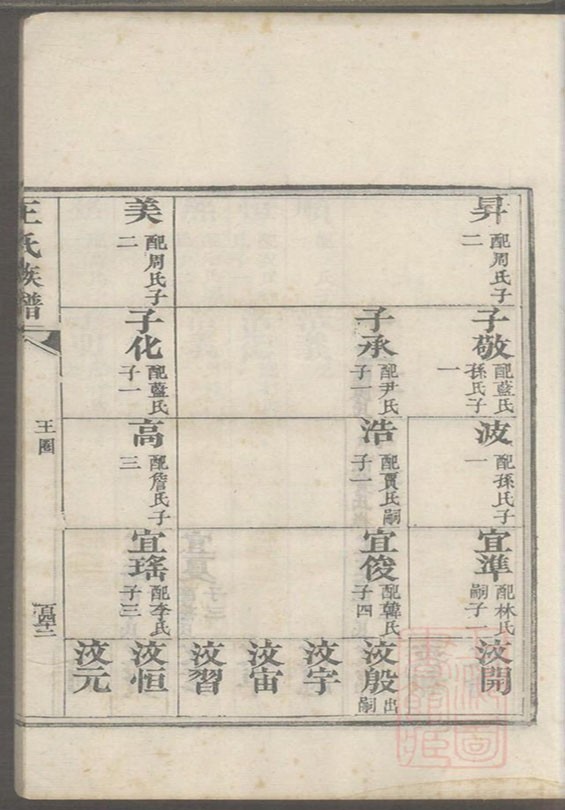 昇
配周氏子
二
美
配周氏子
二
子敬
配藍氏
孫氏子
一
子承
配尹氏
子一
子化
配藍氏
子一
波
配孫氏子
一
浩
配賈氏嗣
子一
高
配詹氏子
三
宜準
配林氏
嗣子一
宜俊
配韓氏
子四
宜瑤
配李氏
子三
汶開
汶殷
出嗣
汶宇
汶宙
汶習
汶恒
汶元
王氏族譜